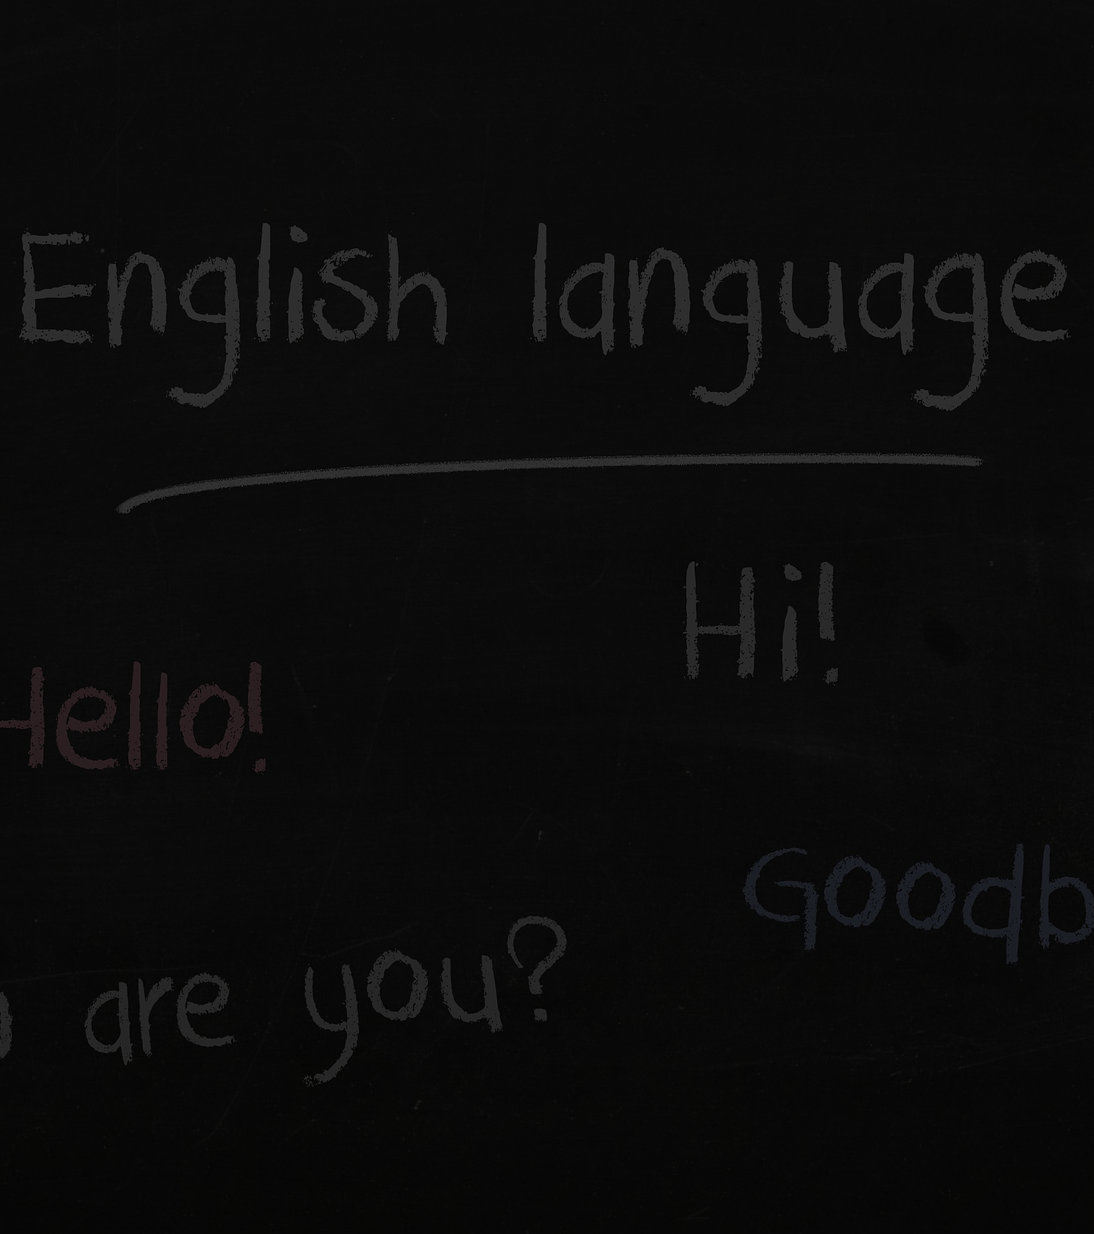 English language
Hi!
Hello!
Goodb
are you?